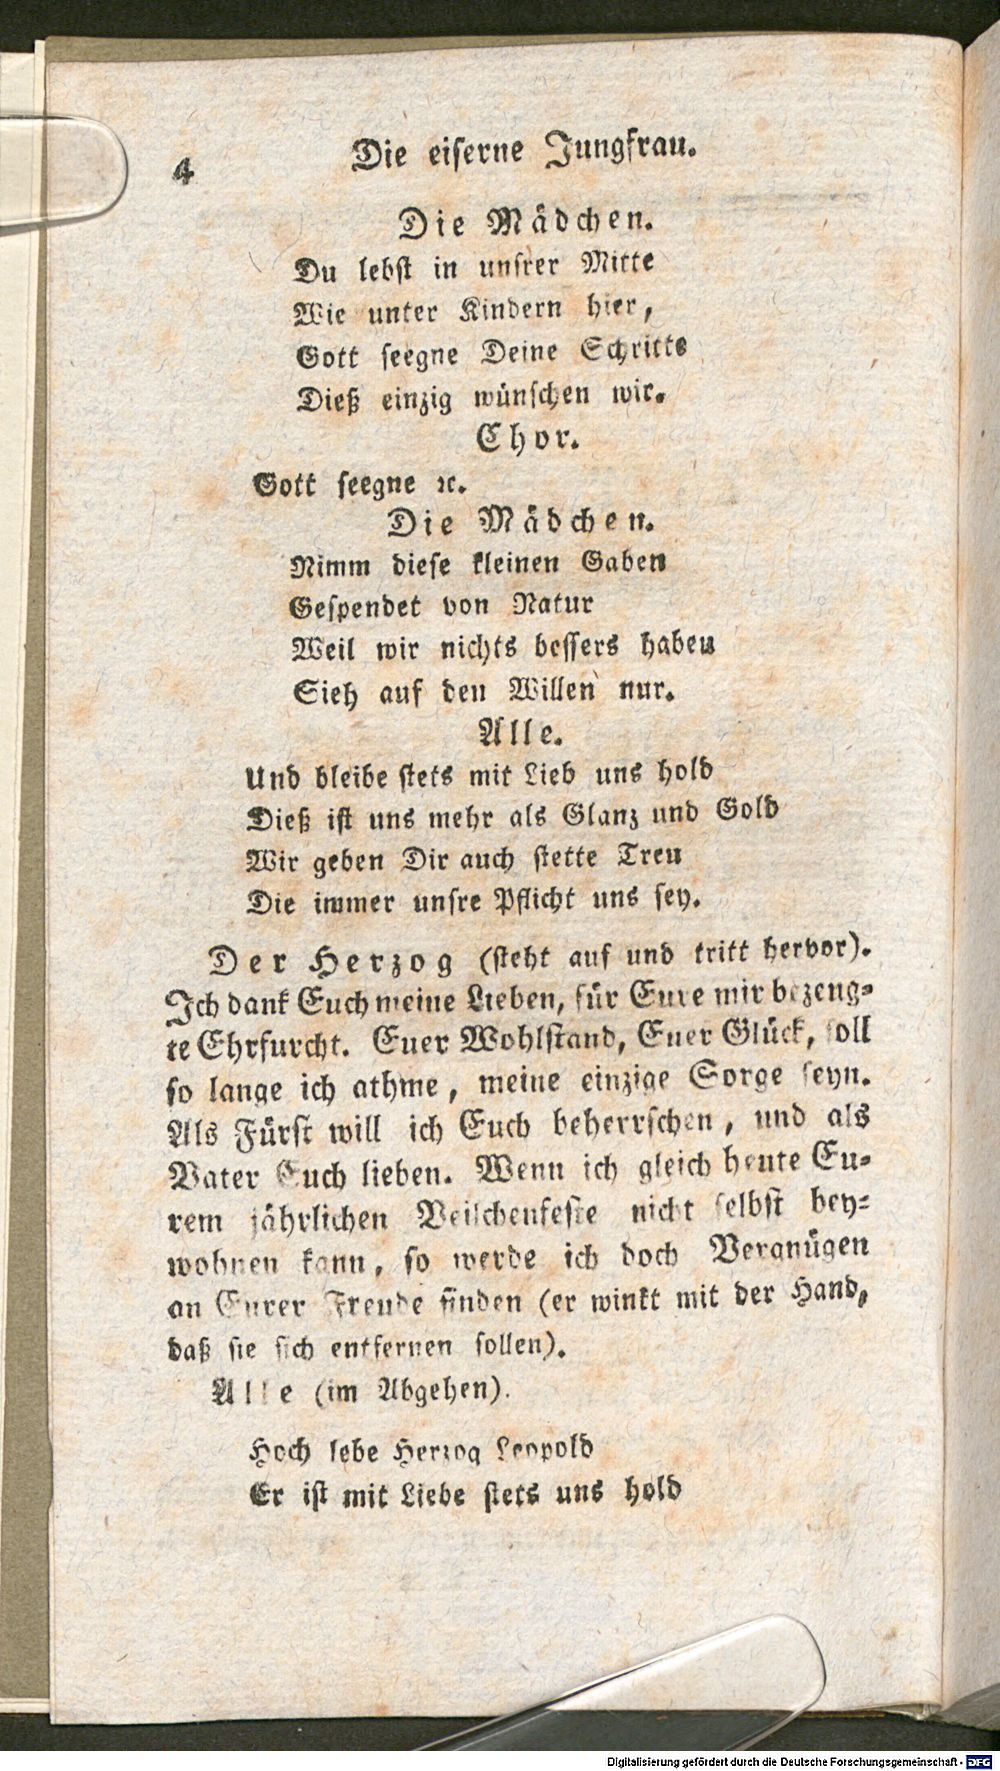 4
Die eiserne Jungfrau.
Die Mädchen.
Du lebst in unsrer Mitte
Wie unter Kindern hier,
Gott seegne Deine Schritte
Dieß einzig wünschen wir.
Chor.
Gott seegne ꝛc.
Die Mädchen.
Nimm diese kleinen Gaben
Gespendet von Natur
Weil wir nichts bessers haben
Sieh auf den Willen nur.
Alle.
Und bleibe stets mit Lieb uns hold
Dieß ist uns mehr als Glanz und Gold
Wir geben Dir auch stette Treu
Die immer unsre Pflicht uns sey.
Der Herzog (steht auf und tritt hervor).
Ich dank Euch meine Lieben, für Eure mir bezeug-
te Ehrfurcht. Euer Wohlstand, Euer Glück, soll
so lange ich athme, meine einzige Sorge seyn.
Als Fürst will ich Euch beherrschen, und als
Vater Euch lieben. Wenn ich gleich heute Eu-
rem jährlichen Veilchenfeste nicht selbst bey-
wohnen kann, so werde ich doch Vergnügen
an Eurer Freude finden (er winkt mit der Hand,
daß sie sich entfernen sollen).
Alle (im Abgehen).
Hoch lebe Herzog Leopold
Er ist mit Liebe stets uns hold
Digitalisierung gefördert durch die Deutsche Forschungsgemeinschaft - DFG